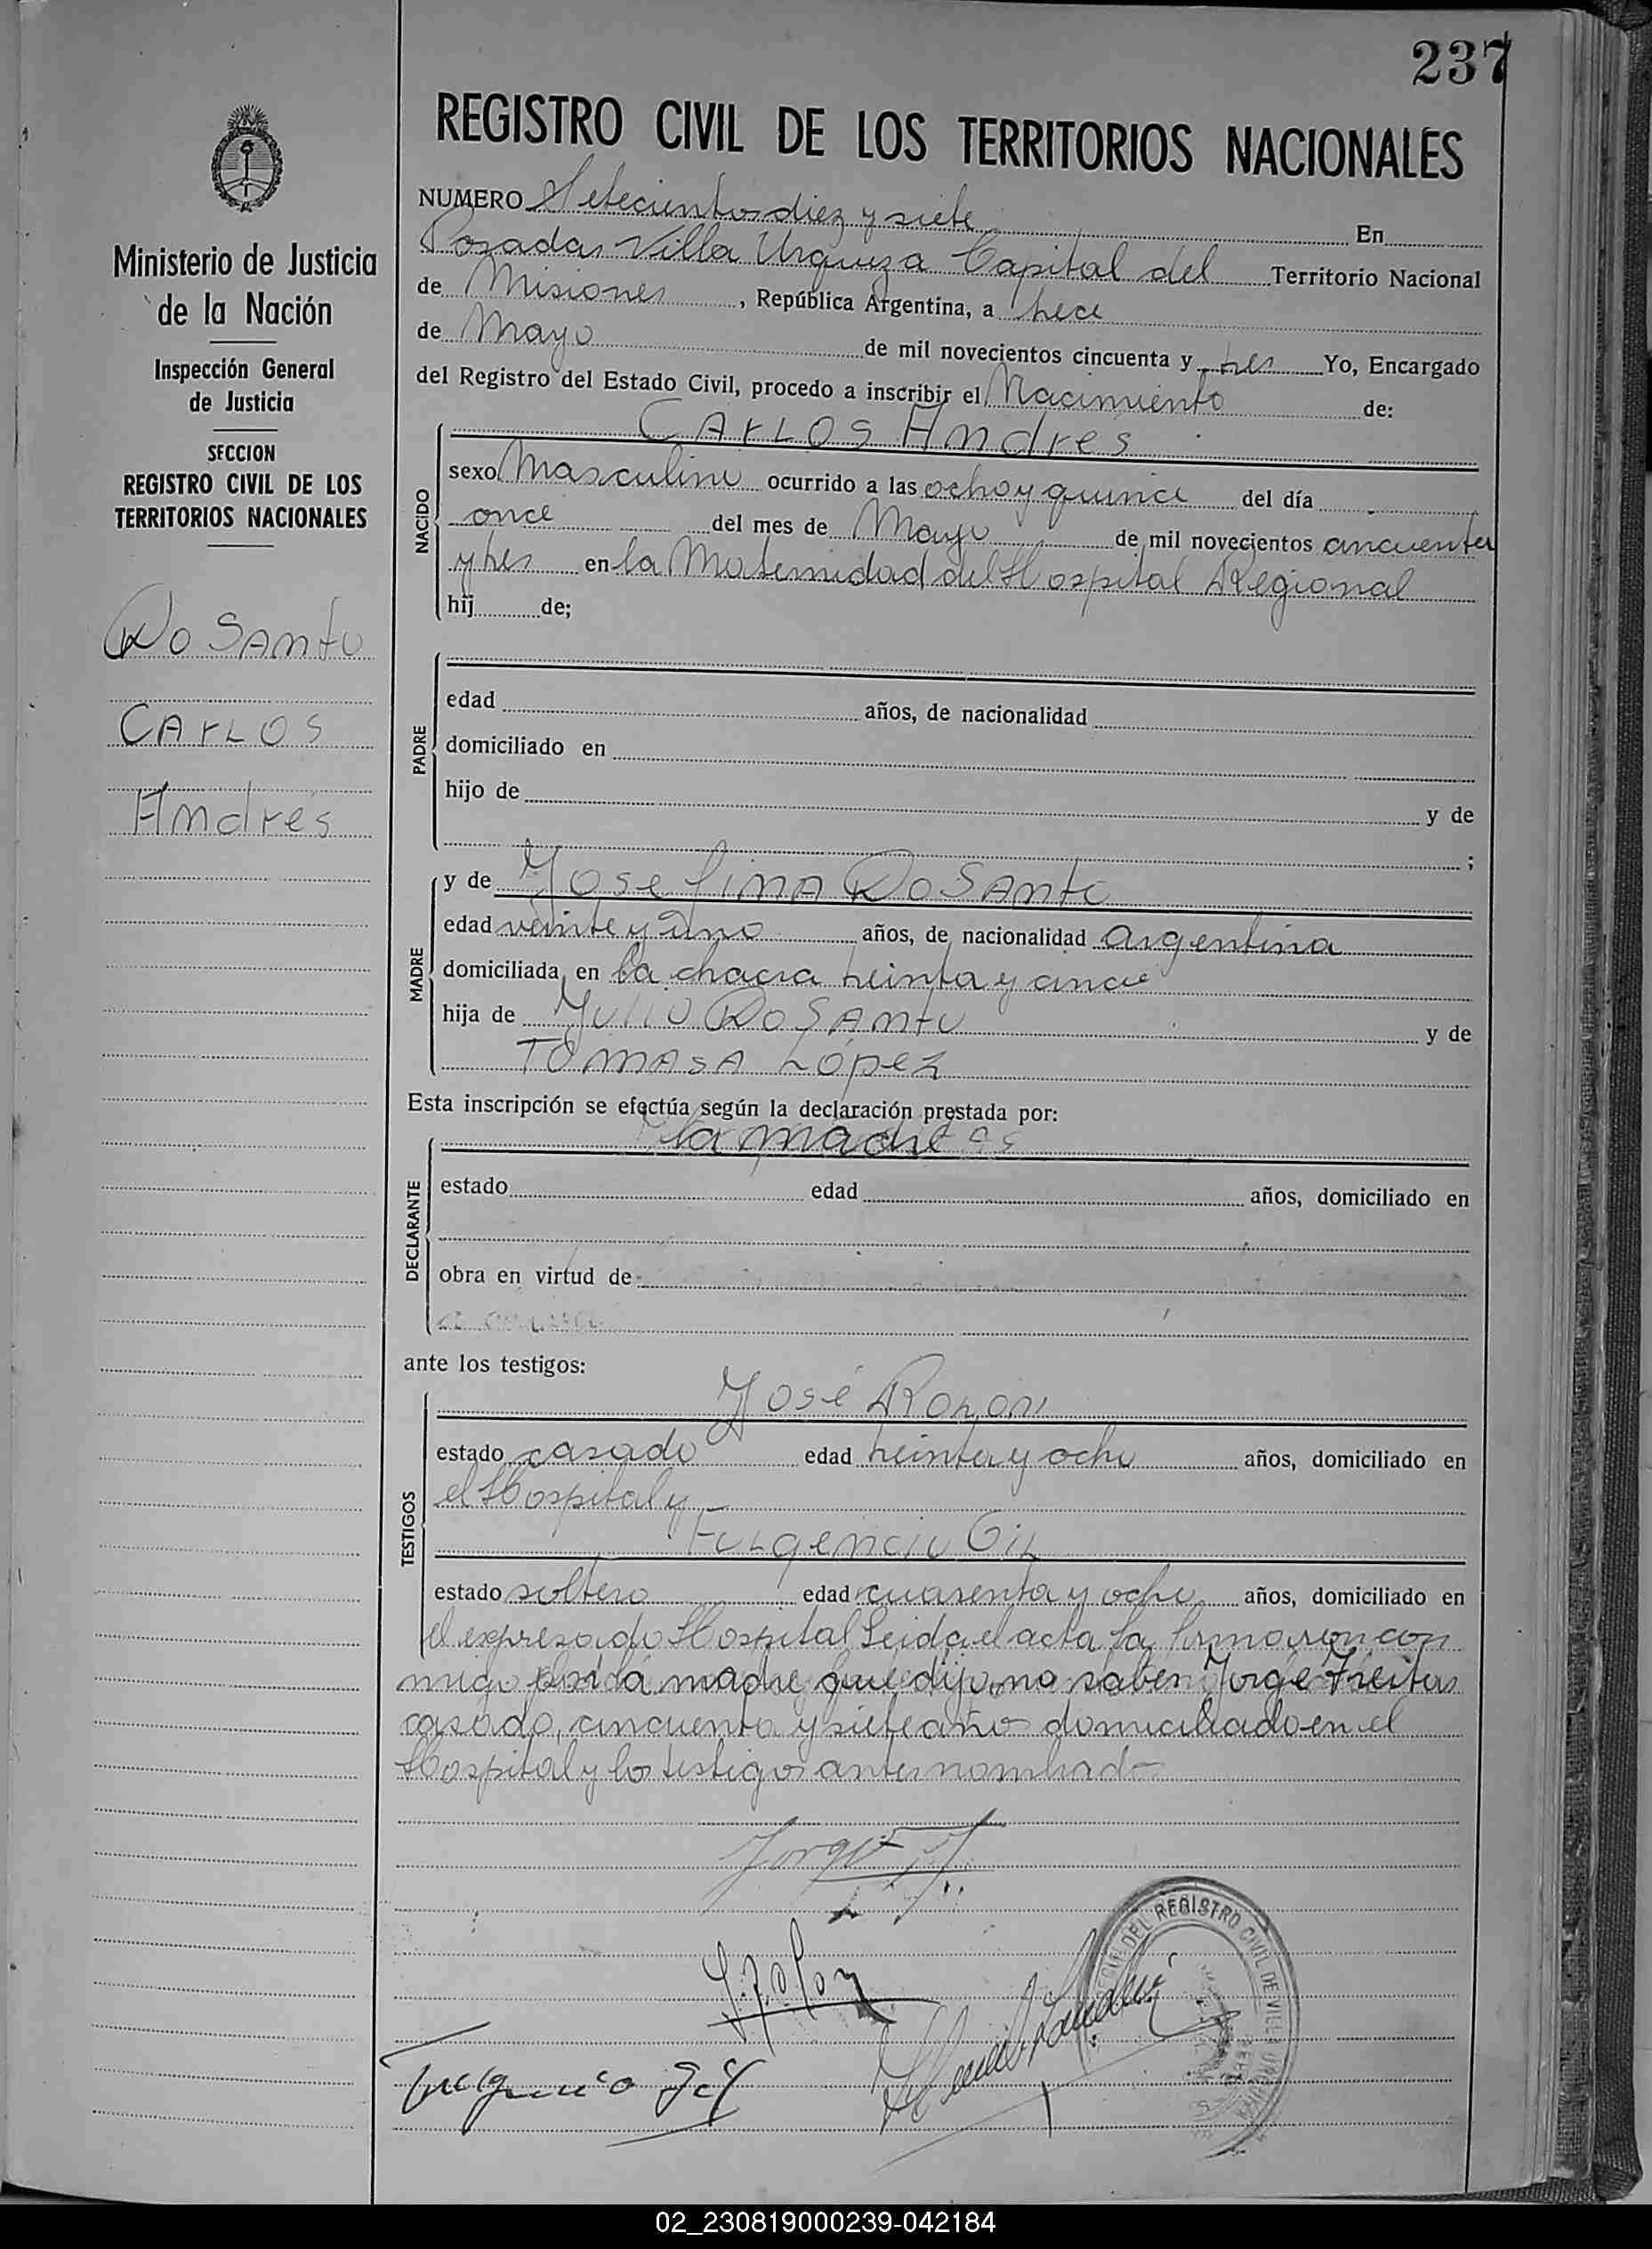 237
REGISTRO CIVIL DE LOS TERRITORIOS NACIONALES
Ministerio de Justicia
de la Nación
Inspección General
de Justicia
SECCION
REGISTRO CIVIL DE LOS
TERRITORIOS NACIONALES
Do Santo
Carlos
Andrés
NUMERO Setecientos diez y siete En
Posadas Villa Urquiza Capital del Territorio Nacional
de Misiones, República Argentina, a trece
de Mayo de mil novecientos cincuenta y tres Yo, Encargado
del Registro del Estado Civil, procedo a inscribir el Nacimiento de:
Carlos Andres
NACIDO
sexo Masculino ocurrido a las ocho y quince del día
once del mes de Mayo de mil novecientos cincuenta
y tres en la Maternidad del Hospital Regional
hij de;
PADRE
edad años, de nacionalidad
domiciliado en
hijo de y de
;
MADRE
y de Josefina Do Santo
edad veinte y uno años, de nacionalidad argentina
domiciliada en la chacra treinta y cinco
hija de Julio Do Santo y de
Tomasa López
Esta inscripción se efectúa según la declaración prestada por:
la madre
DECLARANTE
estado edad años, domiciliado en
obra en virtud de
ante los testigos:
TESTIGOS
José Rolon
estado casado edad treinta y ocho años, domiciliado en
el Hospital y
Fulgencio Gil
estado soltero edad cuarenta y ocho años, domiciliado en
el expresado Hospital Leida el acta la firmaron con
migo por la madre que dijo no saber Jorge Freitas
casado, cincuenta y siete año domiciliado en el
Hospital y los testigos antes nombrado
Jorge F.
J. Rolon
Fulgencio Gil
DEL REGISTRO CIVIL DE VILLA URQUIZA
02_230819000239-042184